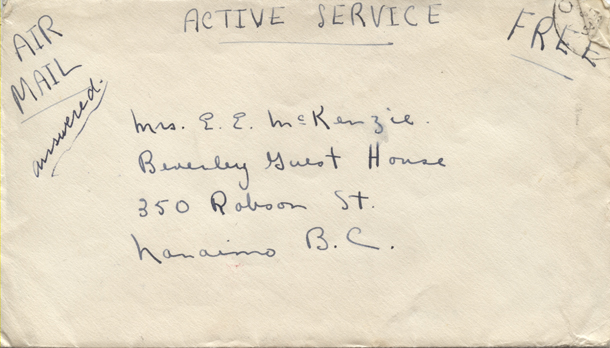 ACTIVE SERVICE
AIR
MAIL
FREE
answered.
Mrs. E. E. McKenzie.
Beverley Guest House
350 Robson St.
Nanaimo B.C.